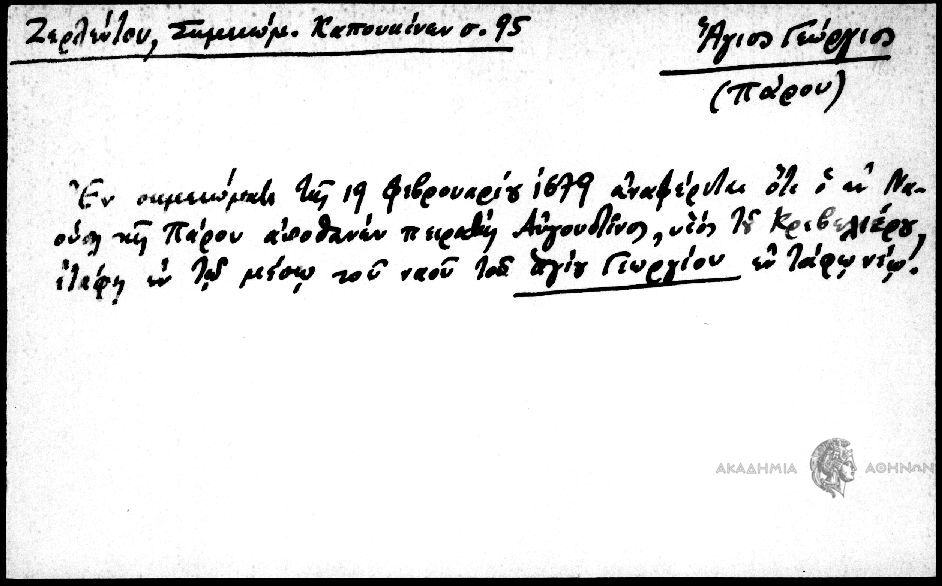 Ζερλέντου, Σημειώμ. Καπουκίνων σ. 95
Ἅγιος Γεώργιος
(Πάρου)
Ἐν σημειώματι τῆς 19 Φεβρουαρίου 1679 ἀναφέρεται ὅτι ὁ ἐν Να-
ούσῃ τῆς Πάρου ἀποθανὼν πειρατὴς Αὐγουστῖνος, υἱὸς τοῦ Κρεβελιέρου,
ἐτάφη ἐν τῷ μέσῳ τοῦ ναοῦ τοῦ ἁγίου Γεωργίου ἐν τάφῳ νέῳ.
ΑΚΑΔΗΜΙΑ ΑΘΗΝΩΝ